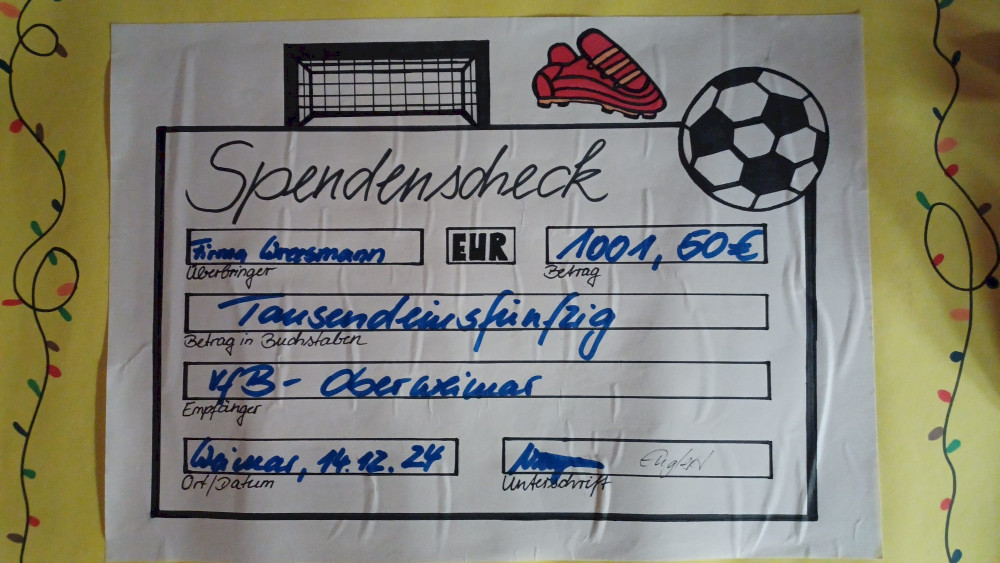 Spendenscheck
Firma EUR 1001,50€
Überbringer Betrag
Tausendeinsfünfzig
Betrag in Buchstaben
VfB - Oberweimar
Empfänger
Weimar, 14.12.24
Ort/Datum Unterschrift